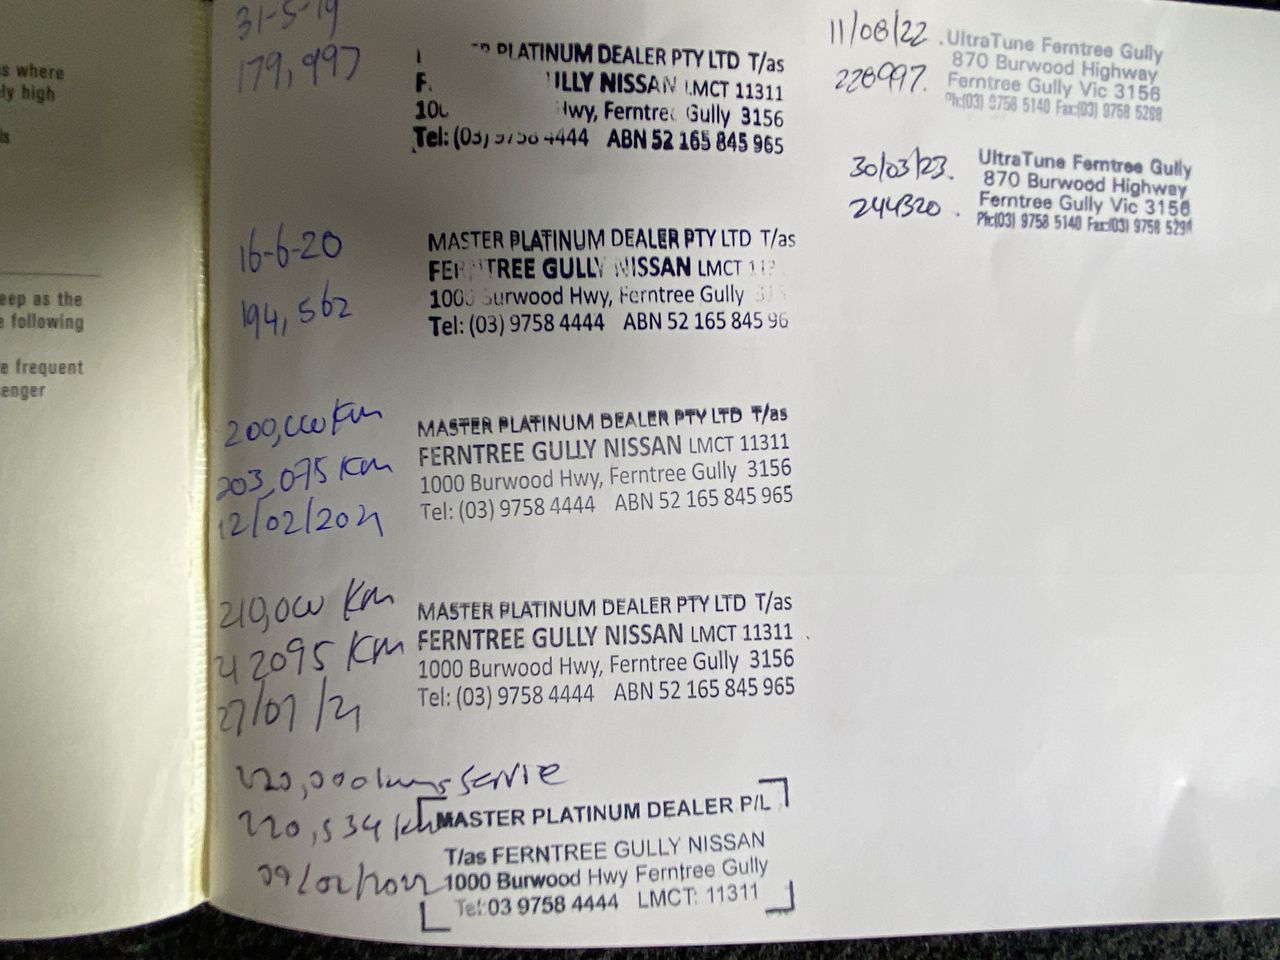 s where
ly high
ls
eep as the
e following
e frequent
enger
31-5-19
179,997
PLATINUM DEALER PTY LTD T/as
F. ULLY NISSAN LMCT 11311
Hwy, Ferntree Gully 3156
Tel: (03) 9758 4444 ABN 52 165 845 965
16-6-20
194,562
MASTER PLATINUM DEALER PTY LTD T/as
FERNTREE GULLY NISSAN LMCT
1000 Burwood Hwy, Ferntree Gully
Tel: (03) 9758 4444 ABN 52 165 845 96
200,000 Km
203,075 Km
12/02/2021
MASTER PLATINUM DEALER PTY LTD T/as
FERNTREE GULLY NISSAN LMCT 11311
1000 Burwood Hwy, Ferntree Gully 3156
Tel: (03) 9758 4444 ABN 52 165 845 965
210,000 Km
212095 Km
27/07/21
MASTER PLATINUM DEALER PTY LTD T/as
FERNTREE GULLY NISSAN LMCT 11311
1000 Burwood Hwy, Ferntree Gully 3156
Tel: (03) 9758 4444 ABN 52 165 845 965
220,000kms Service
220,534 km
09/02/2022
MASTER PLATINUM DEALER P/L
T/as FERNTREE GULLY NISSAN
1000 Burwood Hwy Ferntree Gully
Tel:03 9758 4444 LMCT: 11311
11/08/22
228997.
UltraTune Ferntree Gully
870 Burwood Highway
Ferntree Gully Vic 3156
Ph:(03) 9758 5140 Fax:(03) 9758 5298
30/03/23.
244320.
UltraTune Ferntree Gully
870 Burwood Highway
Ferntree Gully Vic 3156
Ph:(03) 9758 5140 Fax:(03) 9758 5298